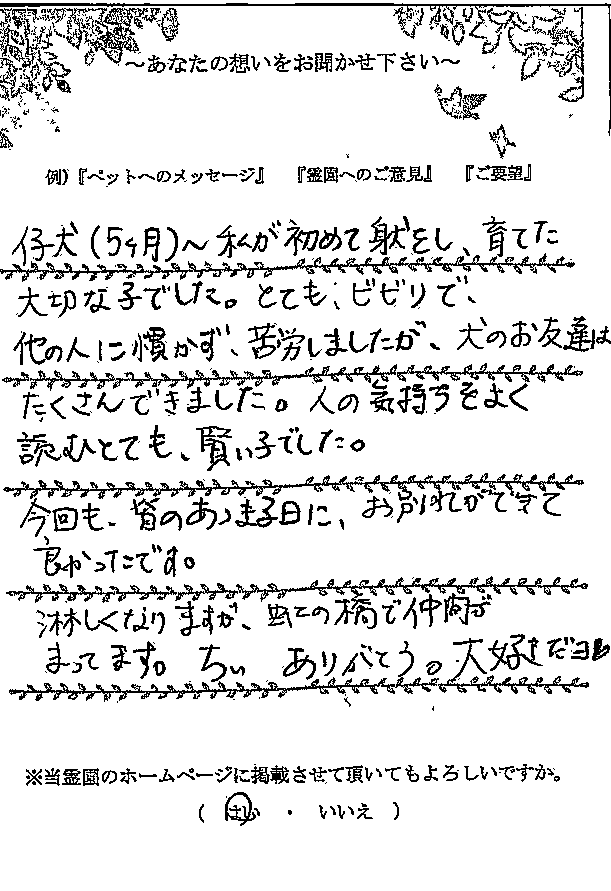 ～あなたの想いをお聞かせ下さい～
例)『ペットへのメッセージ』 『霊園へのご意見』 『ご要望』
仔犬(5ヶ月)～私が初めて躾をし、育てた
大切な子でした。とても、ビビリで、
他の人に慣かず、苦労しましたが、犬のお友達は
たくさんできました。人の気持ちをよく
読むとても、賢い子でした。
今回も、皆のあつまる日に、お別れができて
良かったです。
淋しくなりますが、虹の橋で仲間が
まってます。ちぃ ありがとう。大好きだヨ
※当霊園のホームページに掲載させて頂いてもよろしいですか。
( はい ・ いいえ )